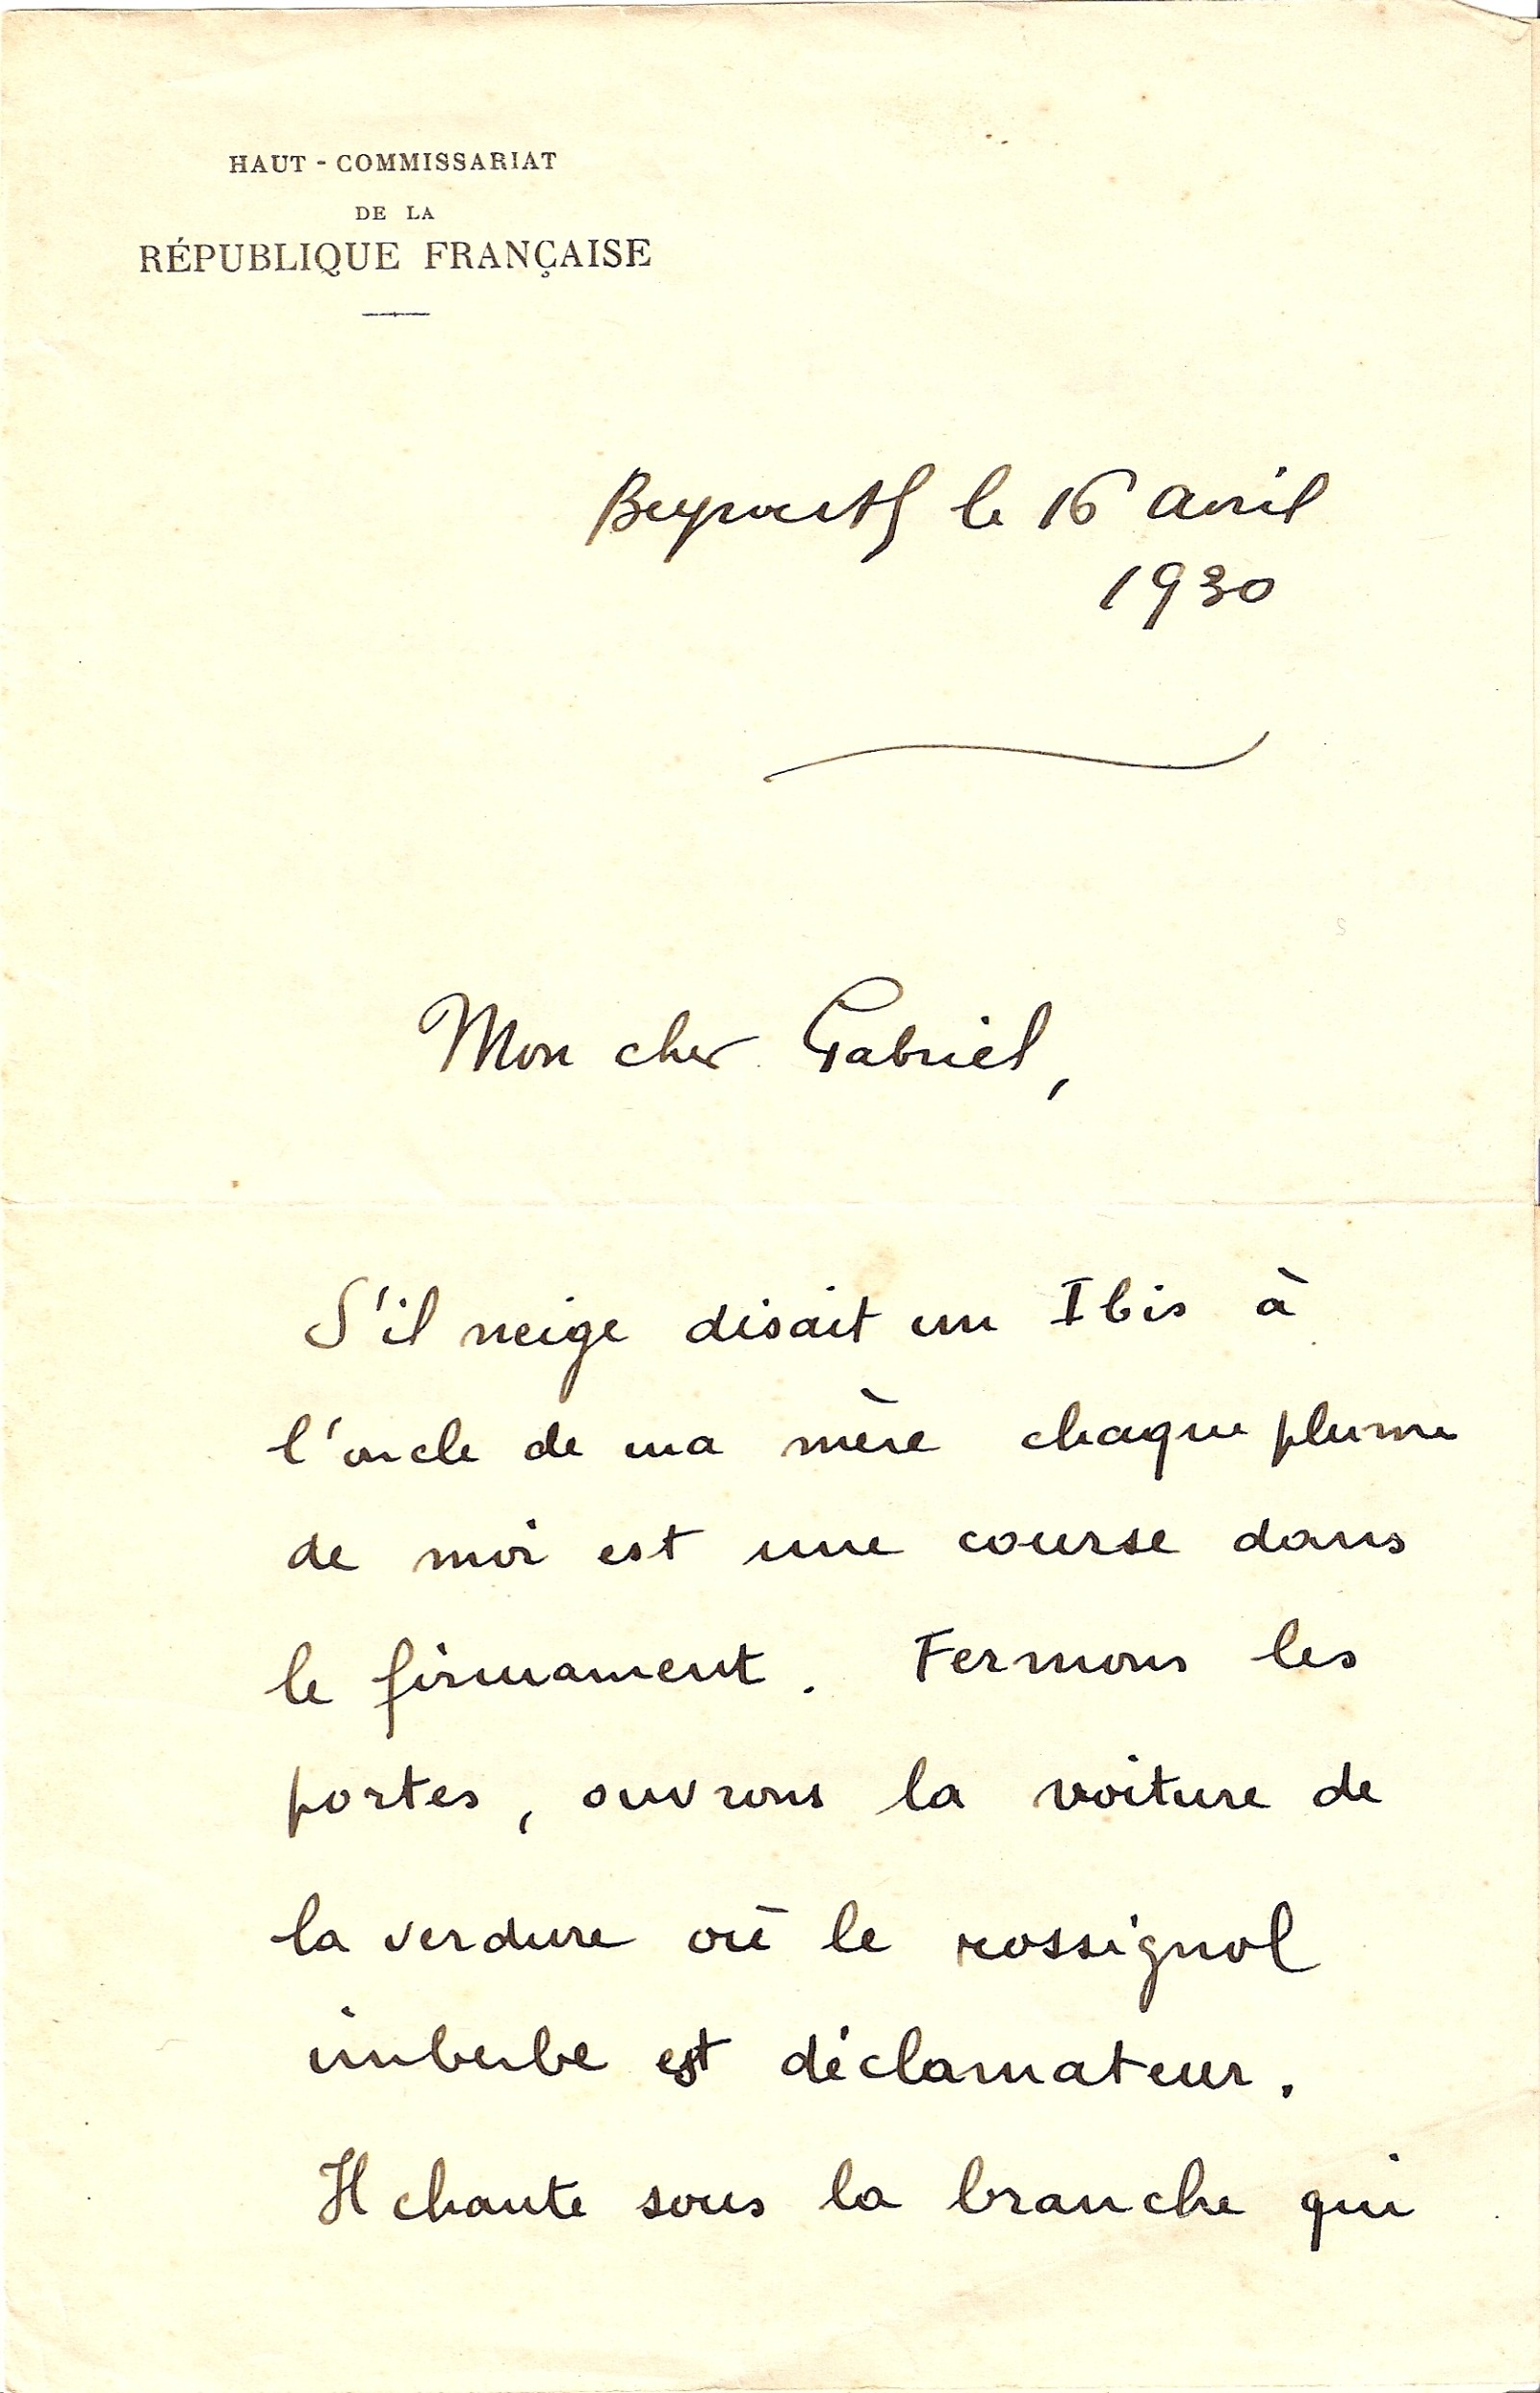 HAUT - COMMISSARIAT
DE LA
RÉPUBLIQUE FRANÇAISE
Beyrouth le 16 avril
1930
Mon cher Gabriel,
S'il neige disait un Ibis à
l'oncle de ma mère chaque plume
de moi est une course dans
le firmament. Fermons les
portes, ouvrons la voiture de
la verdure où le rossignol
imberbe est déclamateur.
Il chante sous la branche qui